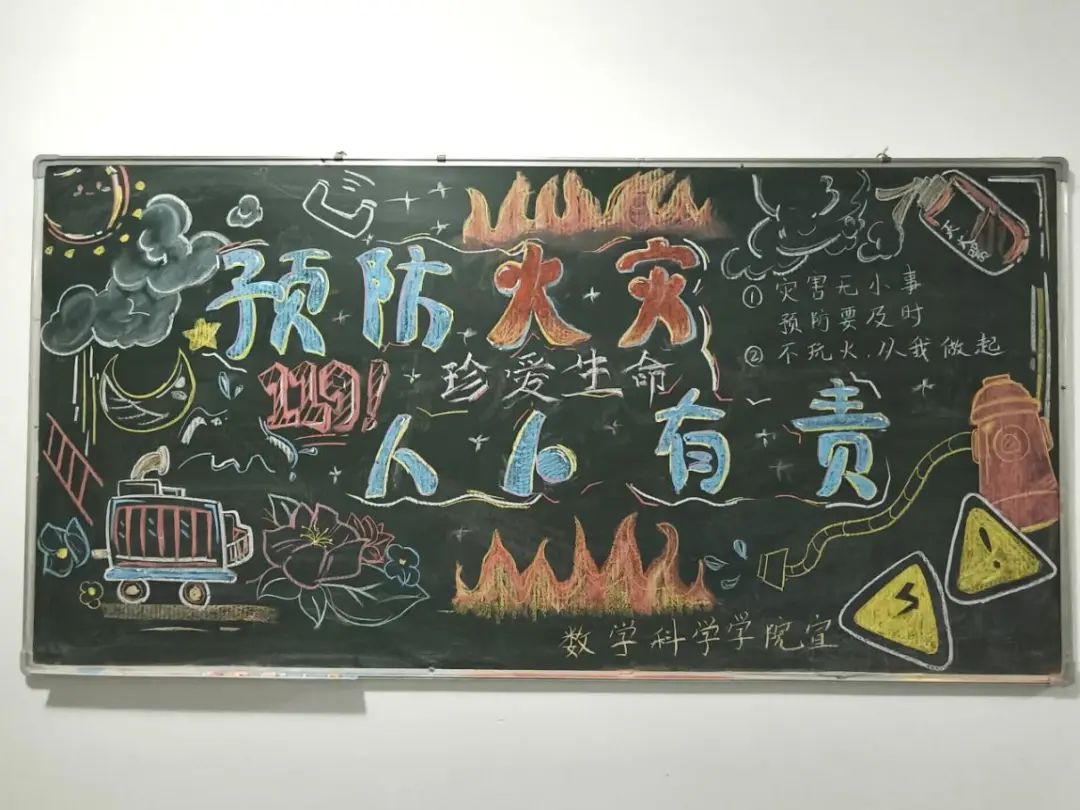 预防火灾
119!
珍爱生命
人人有责
① 灾害无小事
预防要及时
② 不玩火.从我做起
灭火器
数学科学学院宣